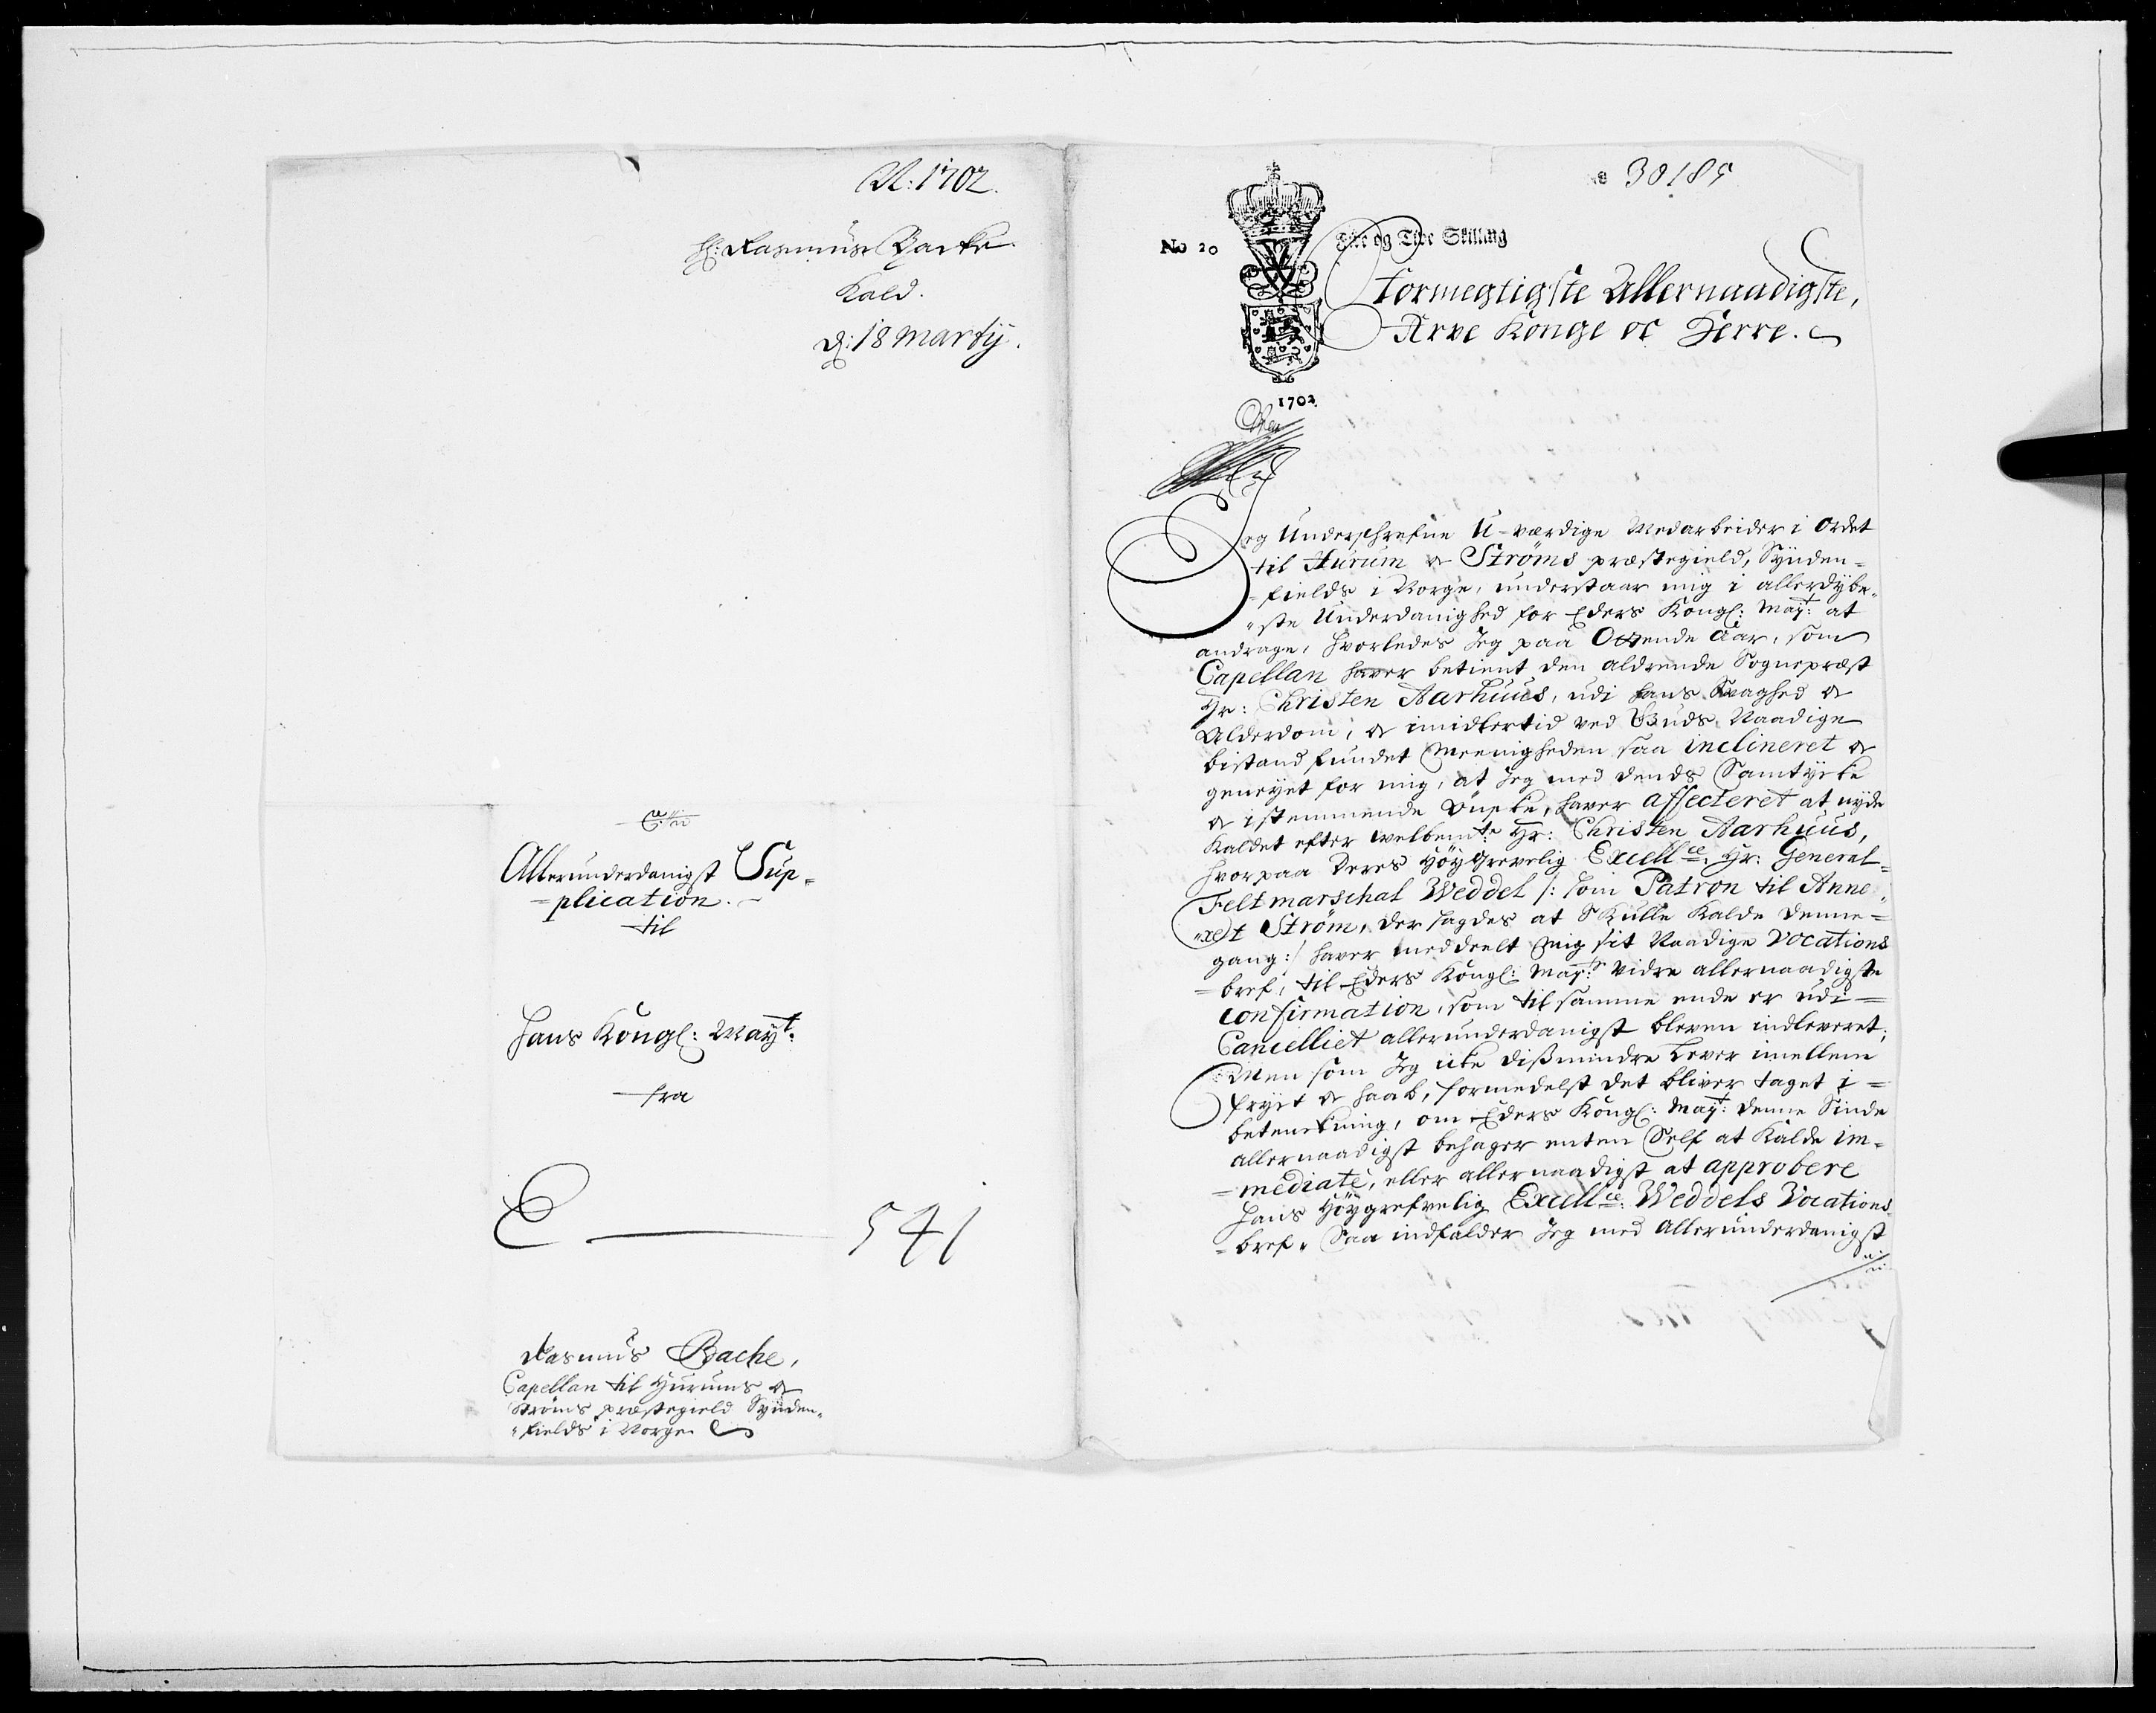 A: 1702.
Hr: Rasmus Backe
Kald.
d: 18 Martij.
Allerunderdanigst Sup=
=plication.
til
Hans Kongl: Mayt:
fra
E 541
Rasmus Bache,
Capellan til Hurums &
Ströms præstegield Synden=
=fields i Norge
30185
No 20
Fire og Tive Skilling
1702
Stormegtigste Allernaadigste,
Arve Konge oc Herre.
Jeg Underschrefne U-værdige Medarbeider i Ordet
til Hurum & Ströms præstegield, Synden=
=fields i Norge, understaar mig i allerdybe=
=ste Underdanighed for Eders Kongl: Mayt: at
andrage, hvorledes Jeg paa Ottende Aar, som
Capellan haver betient den aldrende Sognepræst
Hr: Christen Aarhuus, udi hans Svaghed &
Alderdom, & imidlertid ved Guds Naadige
bistand fundet Meenigheden saa inclineret &
geneyet for mig, at Jeg med dends Samtycke
& istemmende Önske, haver affecteret at nyde
Kaldet efter velbemte Hr: Christen Aarhuus,
hvorpaa Deres Höy Grevelig Excellce: Hr: General=
Feltmarschal Weddel /: som Patron til Anne=
=xet Ström, der sagdes at Skulle Kalde denne=
gang :/ haver meddeelt mig sit Naadige Vocations
=bref, til Eders Kongl: Mayts: vidre allernaadigste
confirmation, som til samme ende er udi=
Cancelliet allerunderdanigst bleven indleveret;
Men som Jeg icke dißmindre lever imellem
fryct & haab, formedelst det bliver taget i=
betenckning, om Eders Kongl: Mayt: denne Sinde
allernaadigst behager enten Self at Kalde im=
=mediatè, eller allernaadigst at approbere
Hans Höygrefvelig Excellce: Weddels Vocations
=bref. Saa indfalder Jeg med Allerunderdanigst